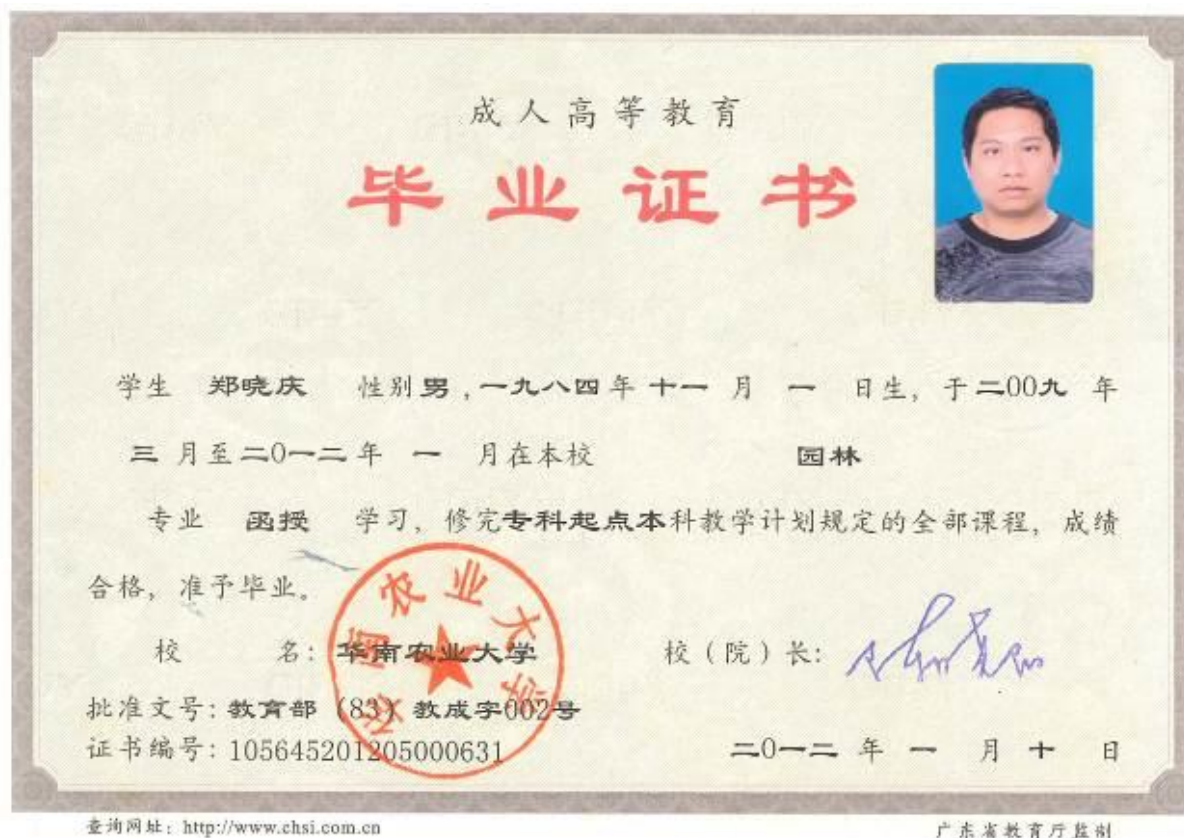 成人高等教育
毕业证书
学生 郑晓庆 性别男,一九八四年十一月一日生, 于二00九年
三月至二0一二年一月在本校 园林
专业 函授 学习, 修完专科起点本科教学计划规定的全部课程, 成绩
合格, 准予毕业。
华南农业大学
校 名: 华南农业大学 校(院)长:
批准文号: 教育部(83)教成字002号
证书编号: 105645201205000631 二0一二年一月十日
查询网址: http://www.chsi.com.cn 广东省教育厅监制